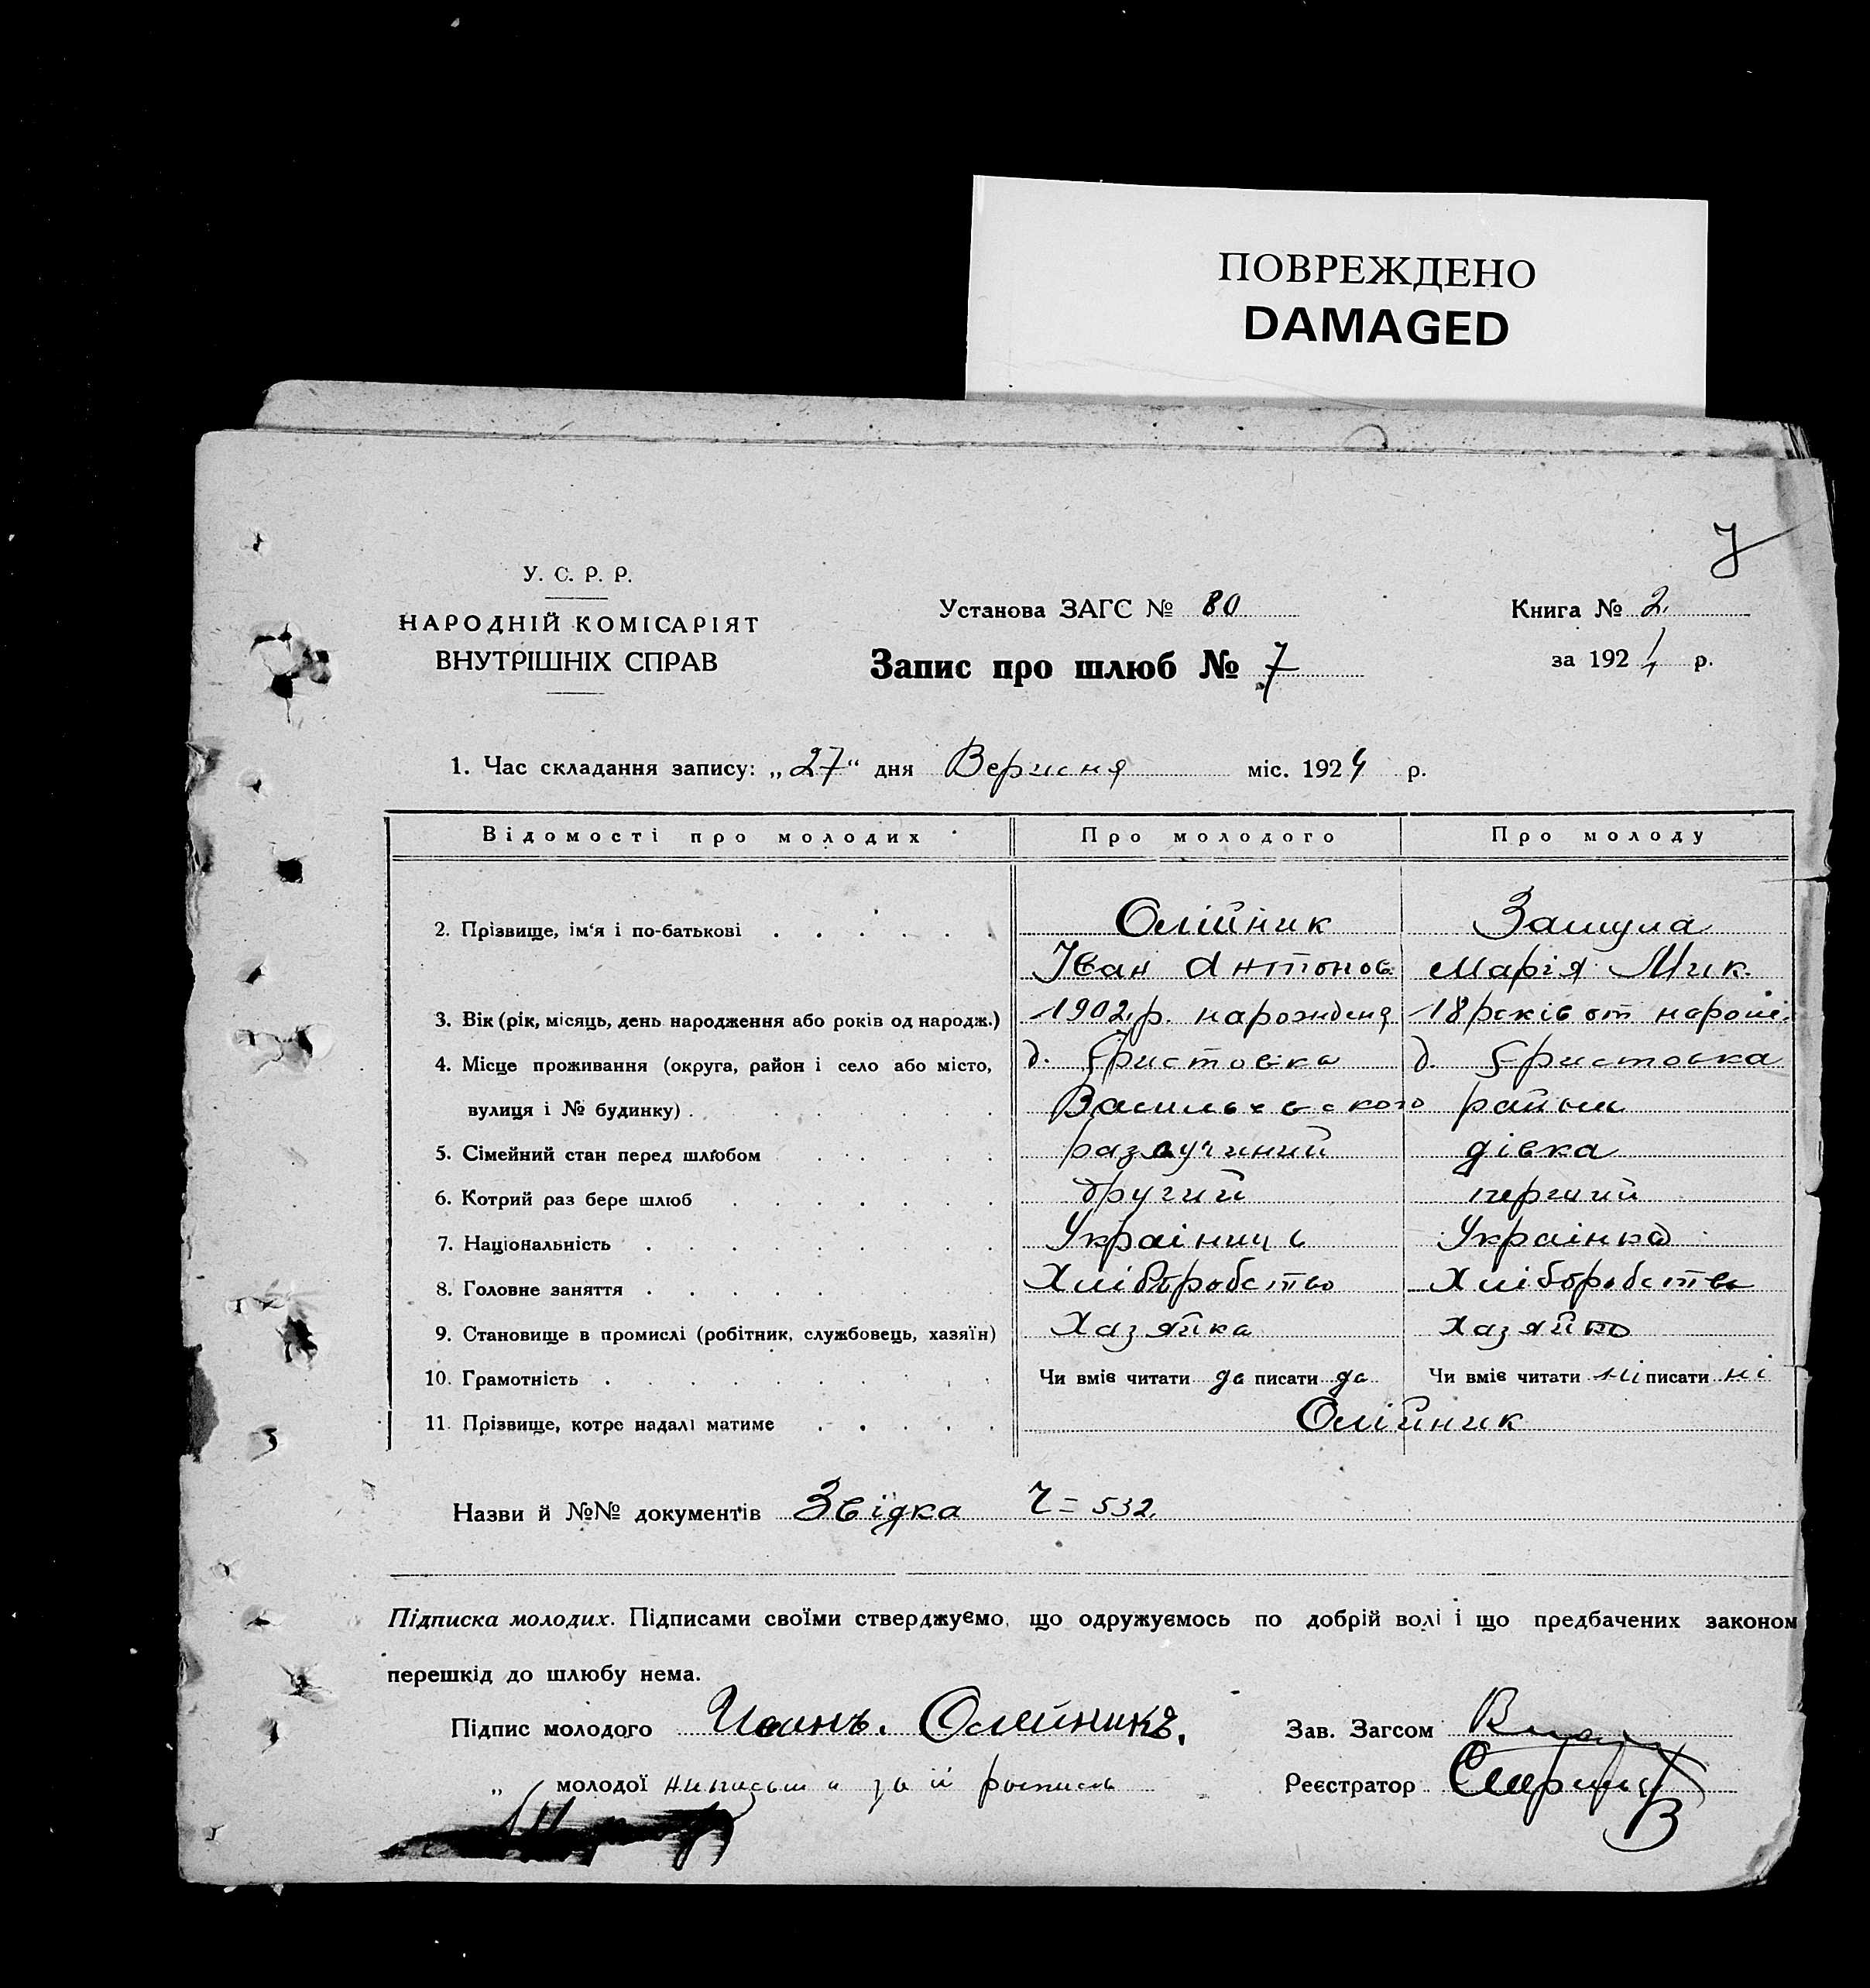 ПОВРЕЖДЕНО
DAMAGED
7
У. С. Р. Р.
НАРОДНІЙ КОМІСАРІЯТ
ВНУТРІШНІХ СПРАВ
Установа ЗАГС № 80
Запис про шлюб № 7
Книга № 2.
за 1924 р.
1. Час складання запису: „27“ дня Вересня міс. 1924 р.
Відомості про молодих Про молодого Про молоду
2. Прізвище, ім‘я і по-батькові Олійник Зашула
Іван Антонов. Марія Мик.
3. Вік (рік, місяць, день народження або років од народж.) 1902.р. нарождена 18 років от
4. Місце проживання (округа, район і село або місто, д. Христовка д. Христовка
вулиця і № будинку) Васильевского району
5. Сімейний стан перед шлюбом разлучиний дівка
6. Котрий раз бере шлюб другий перший
7. Національність Украінець Украінка
8. Головне заняття Хліборобство Хліборобство
9. Становище в промислі (робітник, службовець, хазяїн) Хазяйка Хазяйка
10. Грамотність Чи вміє читати да писати да Чи вміє читати ні писати ні
11. Прізвище, котре надалі матиме Олійник
Назви й №№ документів Звідка Ч = 532.
Підписка молодих. Підписами своїми стверджуємо, що одружуємось по добрій волі і що предбачених законом
перешкід до шлюбу нема.
Підпис молодого Иванъ. Олейникъ.
Зав. Загсом
„ молодої за її
Реєстратор